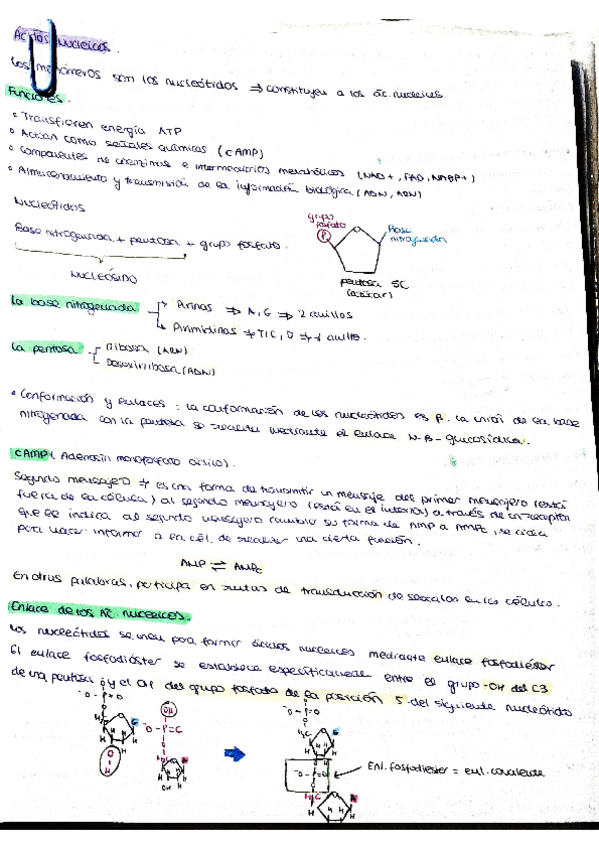 Ácidos nucleicos.
Los monómeros son los nucleótidos ⇒ constituyen a los ác. nucleicos.
Funciones.
• Transfieren energía ATP
• Actúan como señales químicas (cAMP)
• Componentes de coenzimas e intermediarios metabólicos (NAD+, FAD, NADP+)
• Almacenamiento y transmisión de la información biológica (ADN, ARN)
Nucleótidos
Base nitrogenada + pentosa + grupo fosfato.
NUCLEÓSIDO
grupo fosfato
P
Base nitrogenada
pentosa 5C
(azúcar)
La base nitrogenada
Purinas ⇒ A, G ⇒ 2 anillos
Pirimidinas ⇒ T, C, U ⇒ 1 anillo.
La pentosa
Ribosa (ARN)
Desoxirribosa (ADN)
• Conformación y enlaces: la conformación de los nucleótidos es β. La unión de la base
nitrogenada con la pentosa se realiza mediante el enlace N-β-glucosídico.
cAMP (Adenosín monofosfato cíclico).
Segundo mensajero ⇒ es una forma de transmitir un mensaje del primer mensajero (está
fuera de la célula) al segundo mensajero (está en el interior) a través de un receptor
que le indica al segundo mensajero cambiar su forma de AMP a AMPc, se
para hacer informar a la cél. de realizar una cierta función.
AMP ⇌ AMPc
En otras palabras, participa en rutas de transducción de señales en las células.
Enlace de los Ác. nucleicos.
Los nucleótidos se unen para formar ácidos nucleicos mediante enlace fosfodiéster
El enlace fosfodiéster se establece específicamente entre el grupo -OH del C3
de una pentosa y el OH del grupo fosfato de la posición 5 del siguiente nucleótido
Enl. fosfodiéster = enl. covalente